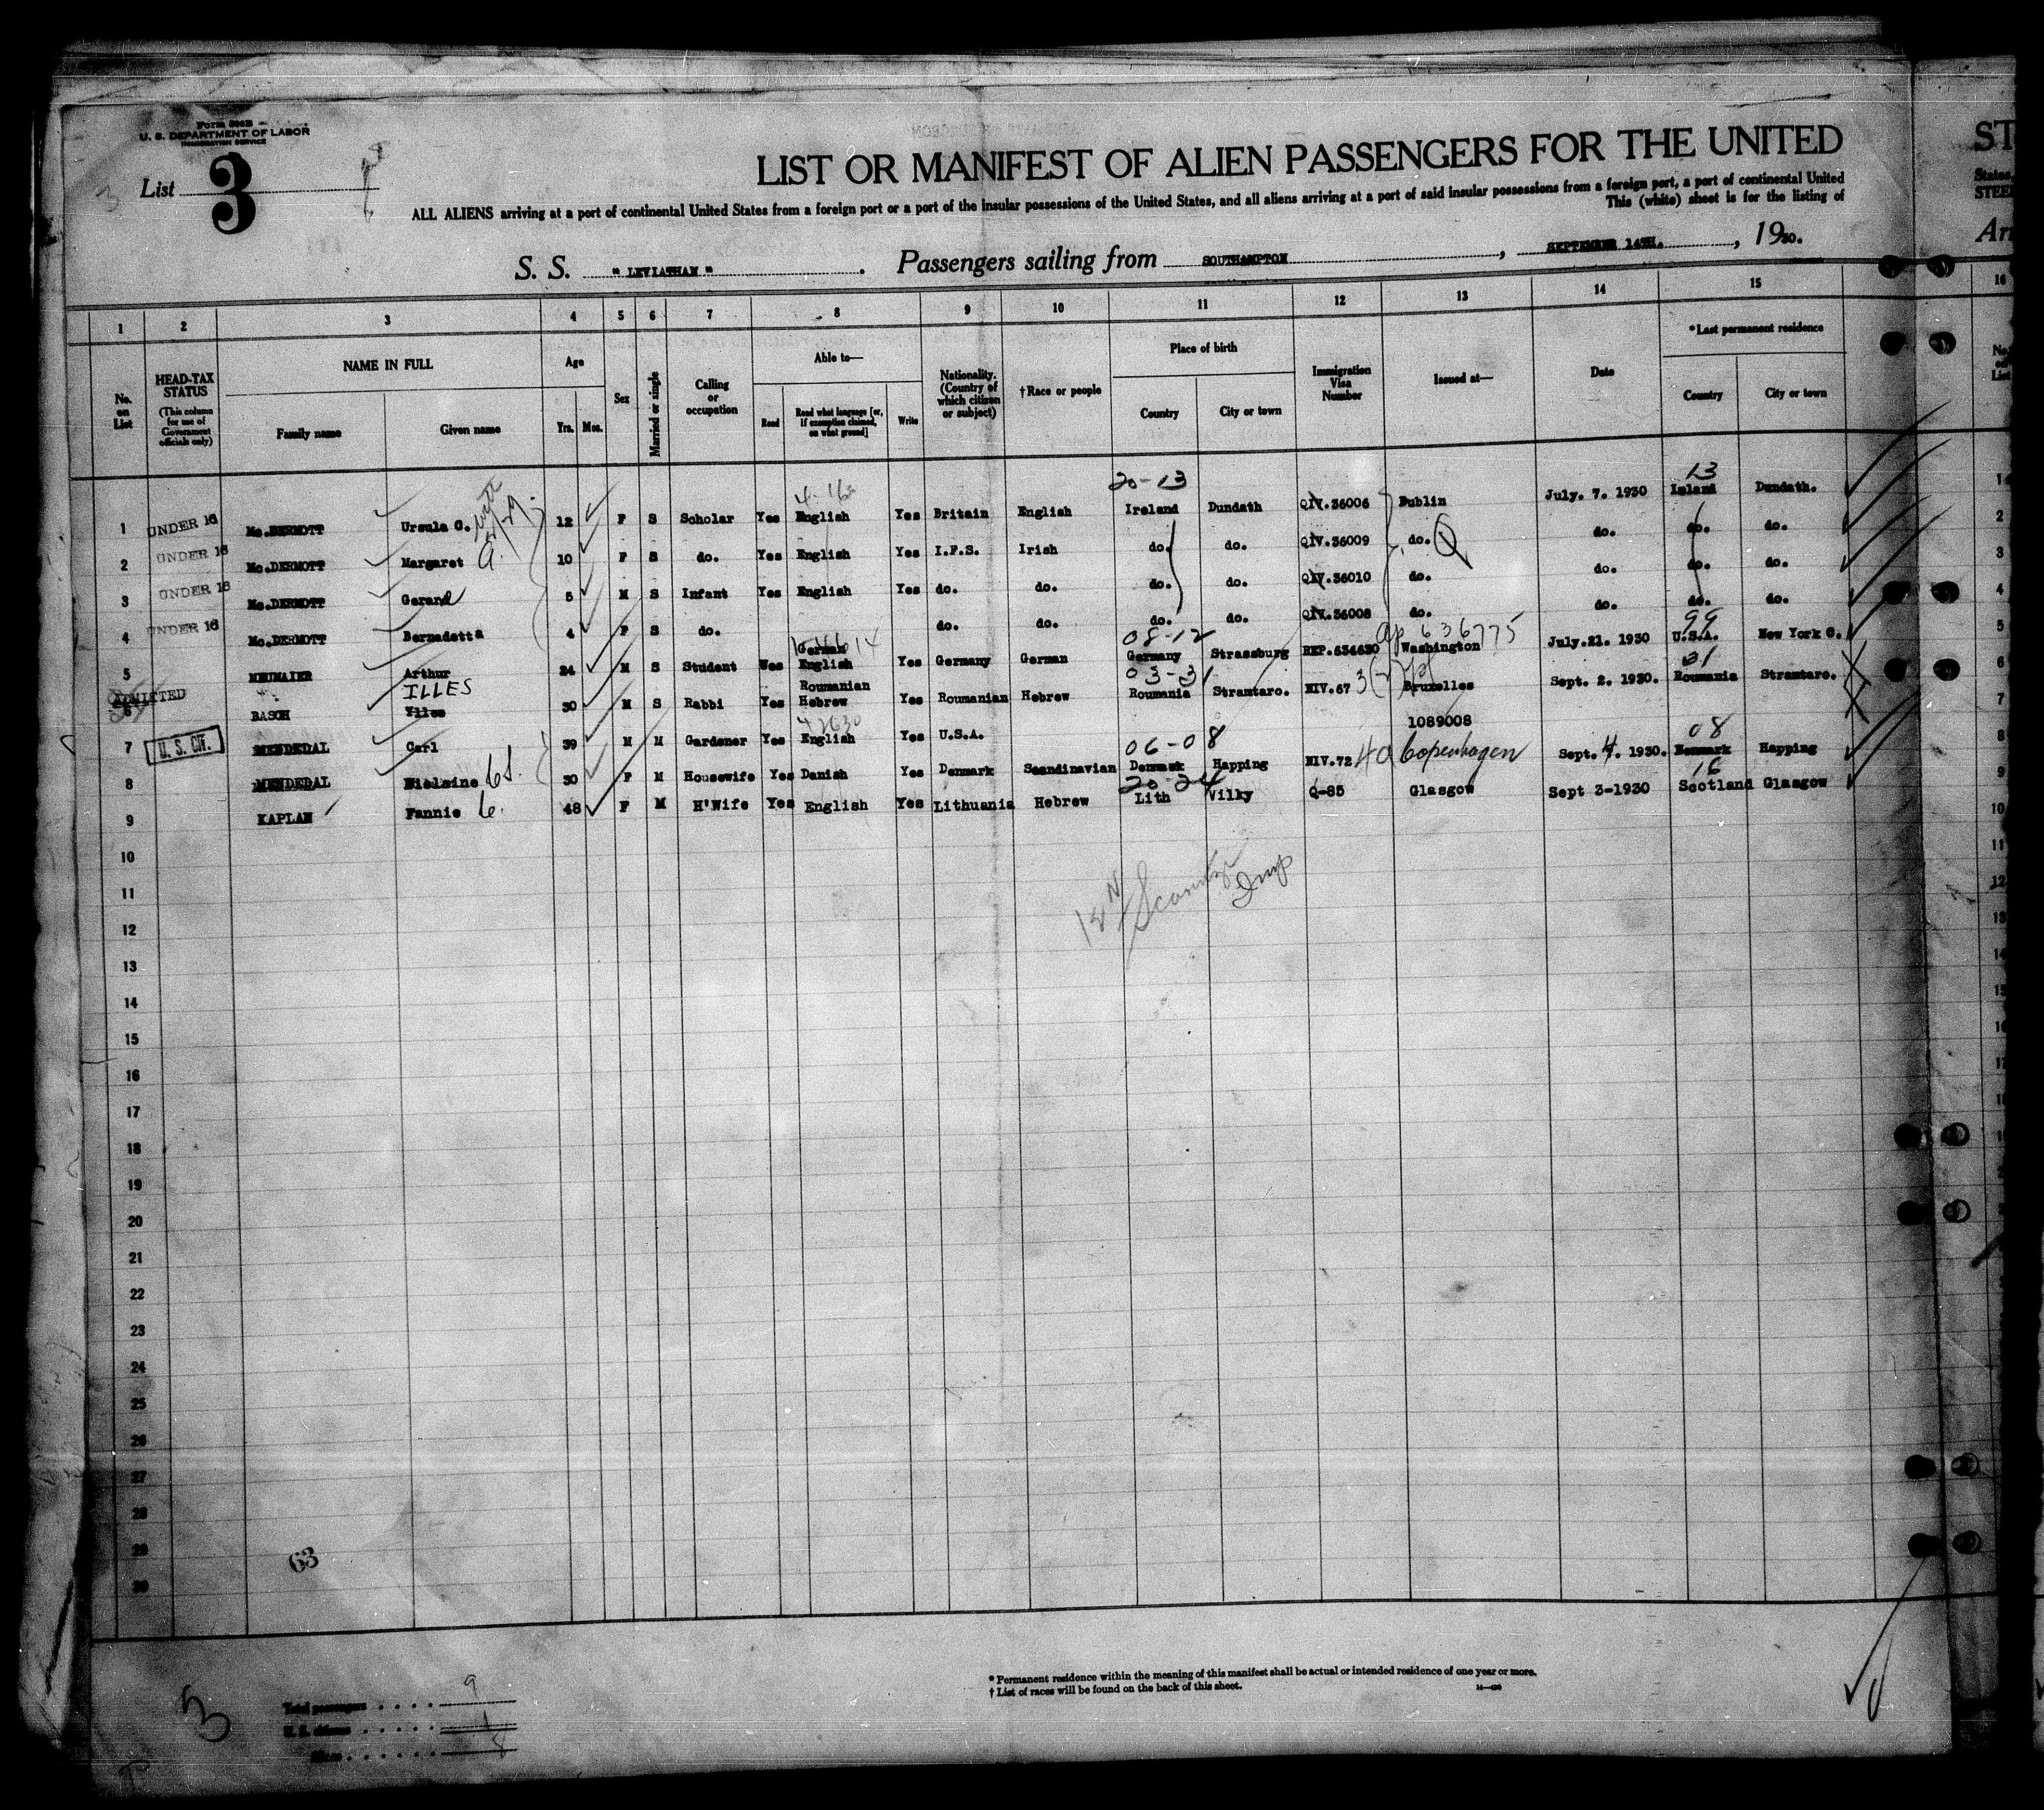 Form 500B
U. S. DEPARTMENT OF LABOR
IMMIGRATION SERVICE
List 3
3
LIST OR MANIFEST OF ALIEN PASSENGERS FOR THE UNITED
ST
ALL ALIENS arriving at a port of continental United States from a foreign port or a port of the insular possessions of the United States, and all aliens arriving at a port of said insular possessions from a foreign port, a port of continental United
States,
This (white) sheet is for the listing of
STEE
S. S. "LEVIATHAN". Passengers sailing from SOUTHAMPTON, SEPTEMBER 14TH., 1930.
Arr
1 2 3 4 5 6 7 8 9 10 11 12 13 14 15 16
No. on List
HEAD-TAX STATUS (This column for use of Government officials only)
NAME IN FULL
Family name Given name
Age
Yrs. Mos.
Sex
Married or single
Calling or occupation
Able to—
Read Read what language [or, if exemption claimed, on what ground] Write
Nationality. (Country of which citizen or subject)
†Race or people
Place of birth
Country City or town
Immigration Visa Number
Issued at—
Date
*Last permanent residence
Country City or town
No. on List
20-13 13
4-16
1 UNDER 16 Mc.DERMOTT Ursula C. 12 F S Scholar Yes English Yes Britain English Ireland Dundath QIV.36006 Dublin July. 7. 1930 Ireland Dundath.
2 UNDER 16 Mc.DERMOTT Margaret 10 F S do. Yes English Yes I.F.S. Irish do. do. QIV.36009 do. Q do. do. do.
3 UNDER 16 Mc.DERMOTT Gerard 5 M S Infant Yes English Yes do. do. do. do. QIV.36010 do. do. do. do.
4 UNDER 16 Mc.DERMOTT Bernadetta 4 F S do. do. do. do. do. QIV.36008 do. do. do. do.
08-12 636775 99
5 NEUMAIER Arthur 24 M S Student Yes German English Yes Germany German Germany Strassburg REP.634630 Washington July.21. 1930 U.S.A. New York C.
ADMITTED ILLES 03-31 31
6 BASCH Illes 30 M S Rabbi Yes Roumanian Hebrew Yes Roumanian Hebrew Roumania Stramtaro. NIV.67 3(2) Bruxelles Sept. 2. 1930. Roumania Stramtaro.
7 U. S. CIT. MENDEDAL Carl 39 M M Gardener Yes English Yes U.S.A. 1089008
06-08 08
8 MENDEDAL Nielsine 30 F M Housewife Yes Danish Yes Denmark Scandinavian Denmark Happing NIV.72 4a Copenhagen Sept. 4. 1930. Denmark Happing
20-24 16
9 KAPLAN Fannie 48 F M H'Wife Yes English Yes Lithuania Hebrew Lith Vilky Q-85 Glasgow Sept 3-1930 Scotland Glasgow
10
11
12
13
14
15
16
17
18
19
20
21
22
23
24
25
26
27
28
29
30
63
* Permanent residence within the meaning of this manifest shall be actual or intended residence of one year or more.
† List of races will be found on the back of this sheet.
3
Total passengers 9
U. S. citizens 1
Aliens 8